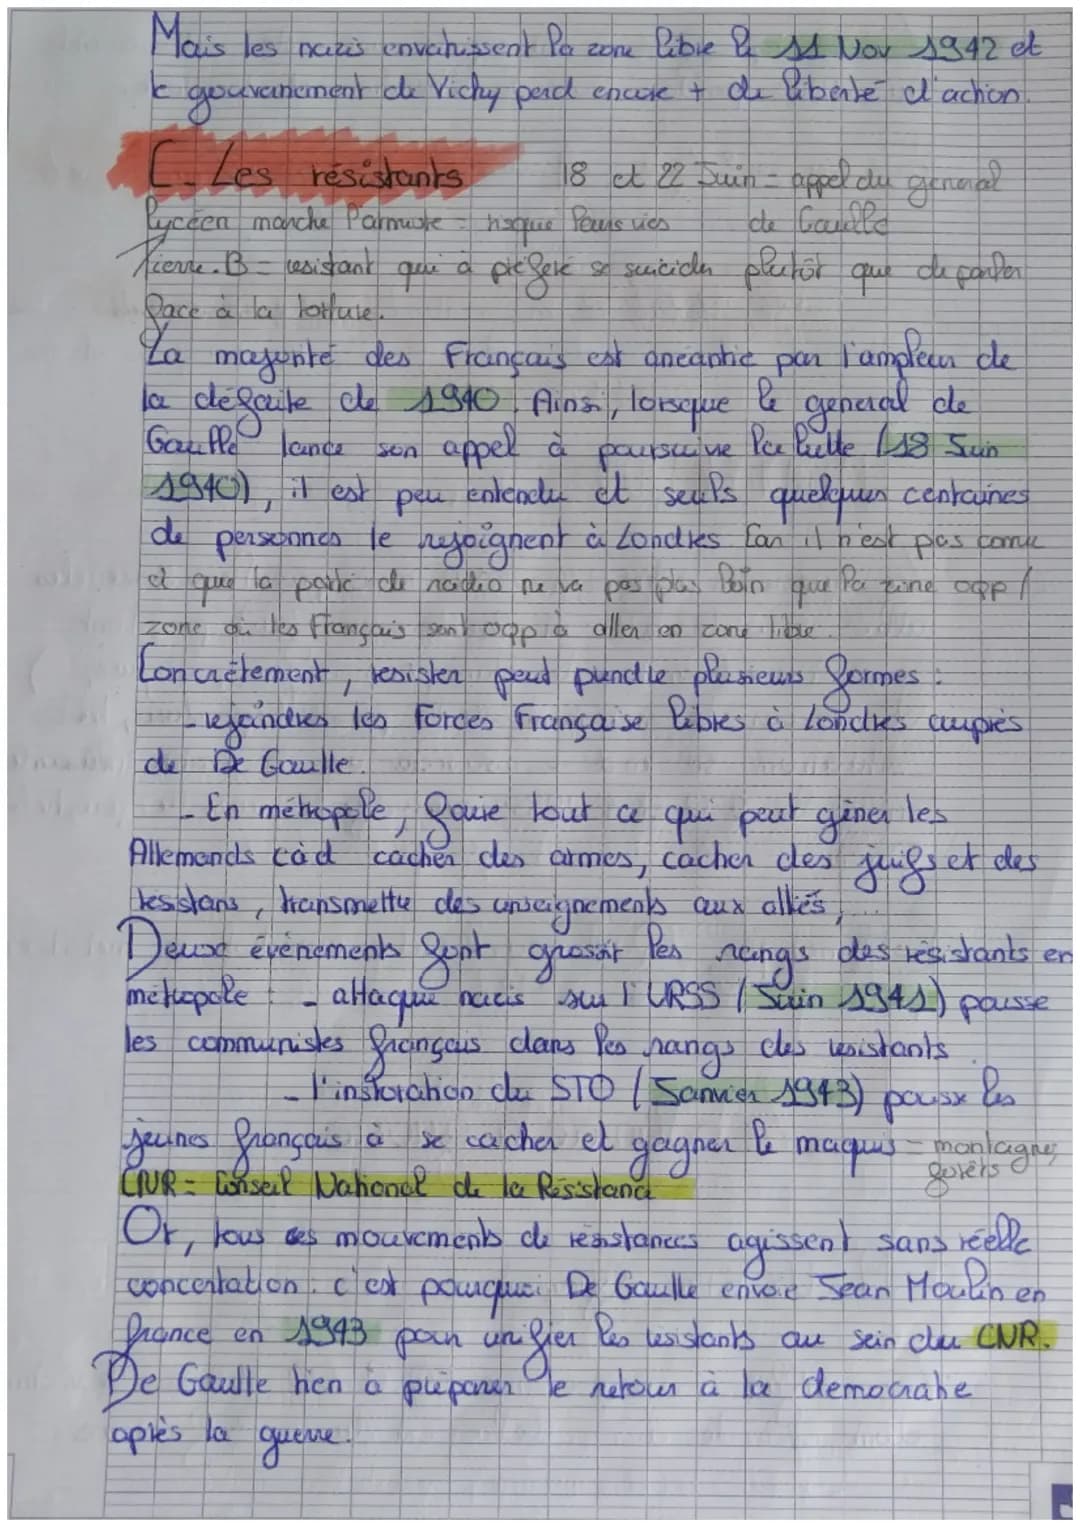 Mais les nazis envahissent la zone libre le 11 Nov 1942 et
le gouvernement de Vichy perd encore + de liberté d'action.
C. Les résistants 18 et 22 Juin = appel du géneral
de Gaulle
Lycéen marche l'armuste = risque leurs vies
Pierre.B = resistant qui a préféré se suicider plutôt que de parler
face à la torture.
La majorité des Français est anéantie par l'ampleur de
la défaite de 1940. Ainsi, lorsque le géneral de
Gaulle lance son appel à poursuivre la lutte (18 Juin
1940), il est peu entendu et seuls quelques centaines
de personnes le rejoignent à Londres Car il n'est pas connu
et que la porté de radio ne va pas plus loin que la zone opp /
zone où les français sont opp à aller en zone libre.
Concrètement, resister peut prendre plusieurs formes :
- rejoindres les Forces Française libres à Londres auprès
de De Gaulle.
- En métropole, faire tout ce qui peut gêner les
Allemands càd cacher des armes, cacher des juifs et des
resistans, transmettre des renseignements aux alliés, ...
Deux évènements font grossir les rangs des résistants en
métropole : - attaque nazis sur l'URSS (Juin 1941) pousse
les communistes français dans les rangs des resistants
- l'instoration du STO (Janvier 1943) pousse les
jeunes français à se cacher et gagner le maquis = montagnes,
forêts
CNR = Conseil National de la Résistance
Or, tous ces mouvements de résistances agissent sans réelle
concertation : c'est pourquoi De Gaulle envoie Jean Moulin en
france en 1943 pour unifier les resistants au sein du CNR.
De Gaulle tien à préparer le retour à la démocratie
après la guerre.